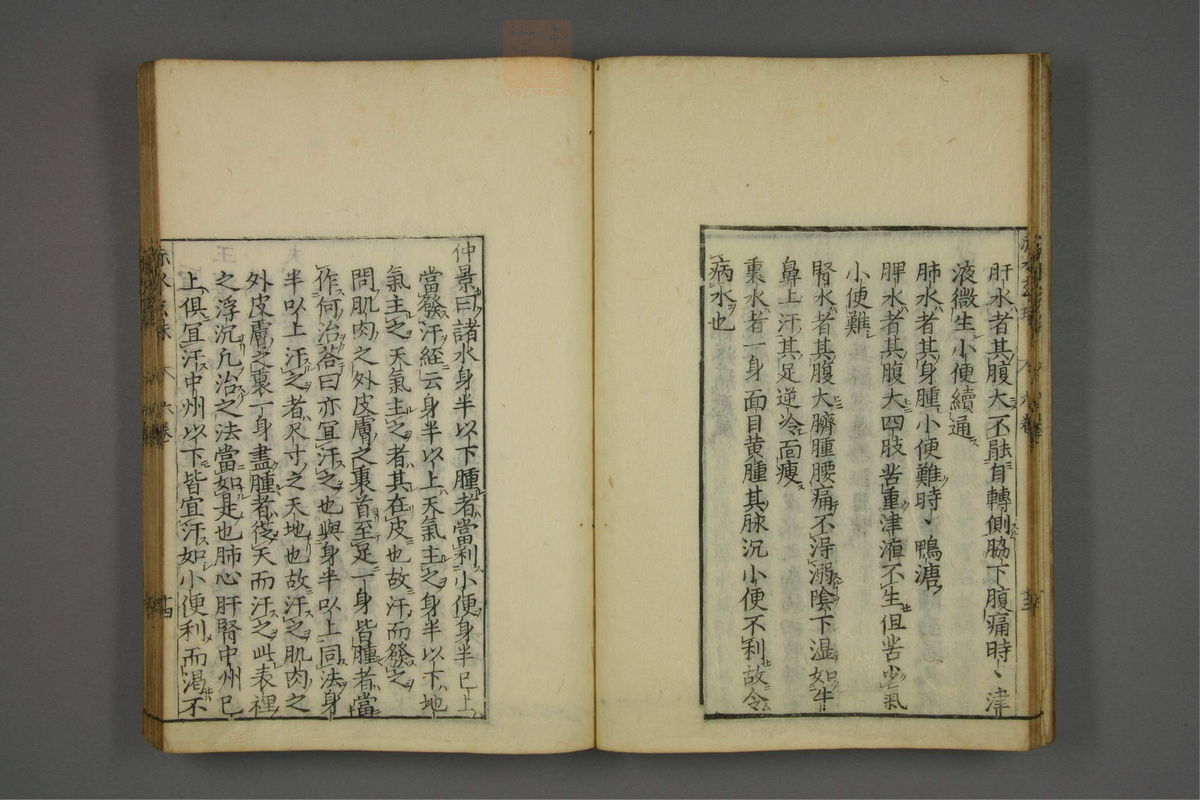 肝水者其腹大不能自轉側脇下腹痛時〻津
液微生小便續通
肺水者其身腫小便難時〻鴨溏
脾水者其腹大四肢苦重津液不生但苦少氣
小便難
腎水者其腹大臍腫腰痛不得溺陰下湿如牛
鼻上汗其足逆冷面瘦
裏水者一身面目黄腫其脉沉小便不利故令
病水也
仲景曰諸水身半以下腫者當利小便身半已上
當發汗經云身半以上天氣主之身半以下地
氣主之天氣主之者其在皮也故汗而發之
問肌肉之外皮膚之裏首至足一身皆腫者當
作何治荅曰亦宜汗之也與身半以上同法身
半以上汗之者尺寸之天地也故汗之肌肉之
外皮膚之裏一身盡腫者從天而汗之此表裡
之浮沉凢治之法當如是也肺心肝腎中州已
上俱宜汗中州以下皆宜汗如小便利而渴不